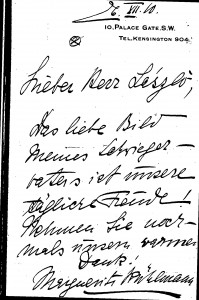 26. XII. 10.
10, PALACE GATE. S.W.
TEL. KENSINGTON 904.
Lieber Herr László,
Das liebe Bild
meines Schwieger-
vaters ist unsere
tägliche Freude!
Nehmen Sie noch-
mals unsern warmen
Dank!
Marguerite